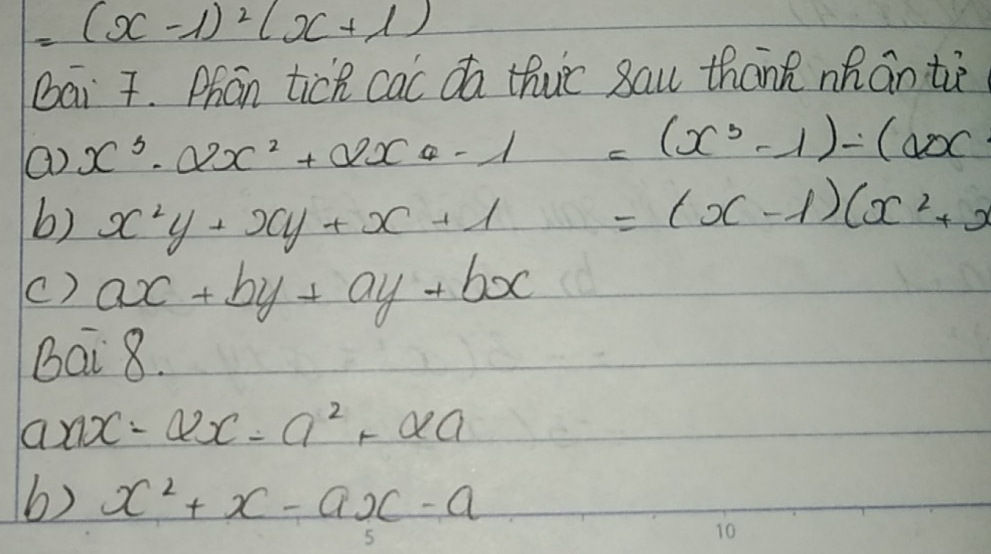 = (x - 1)² (x + 1)
Bài 7. Phân tích các đa thức sau thành nhân tử (
a) x³ - 2x² + 2x - 1 = (x³ - 1) - (2x
b) x²y + xy + x + 1 = (x - 1)(x² + x
c) ax + by + ay + bx
Bài 8.
x - 2x - a² + 2a
b) x² + x - ax - a
5 10